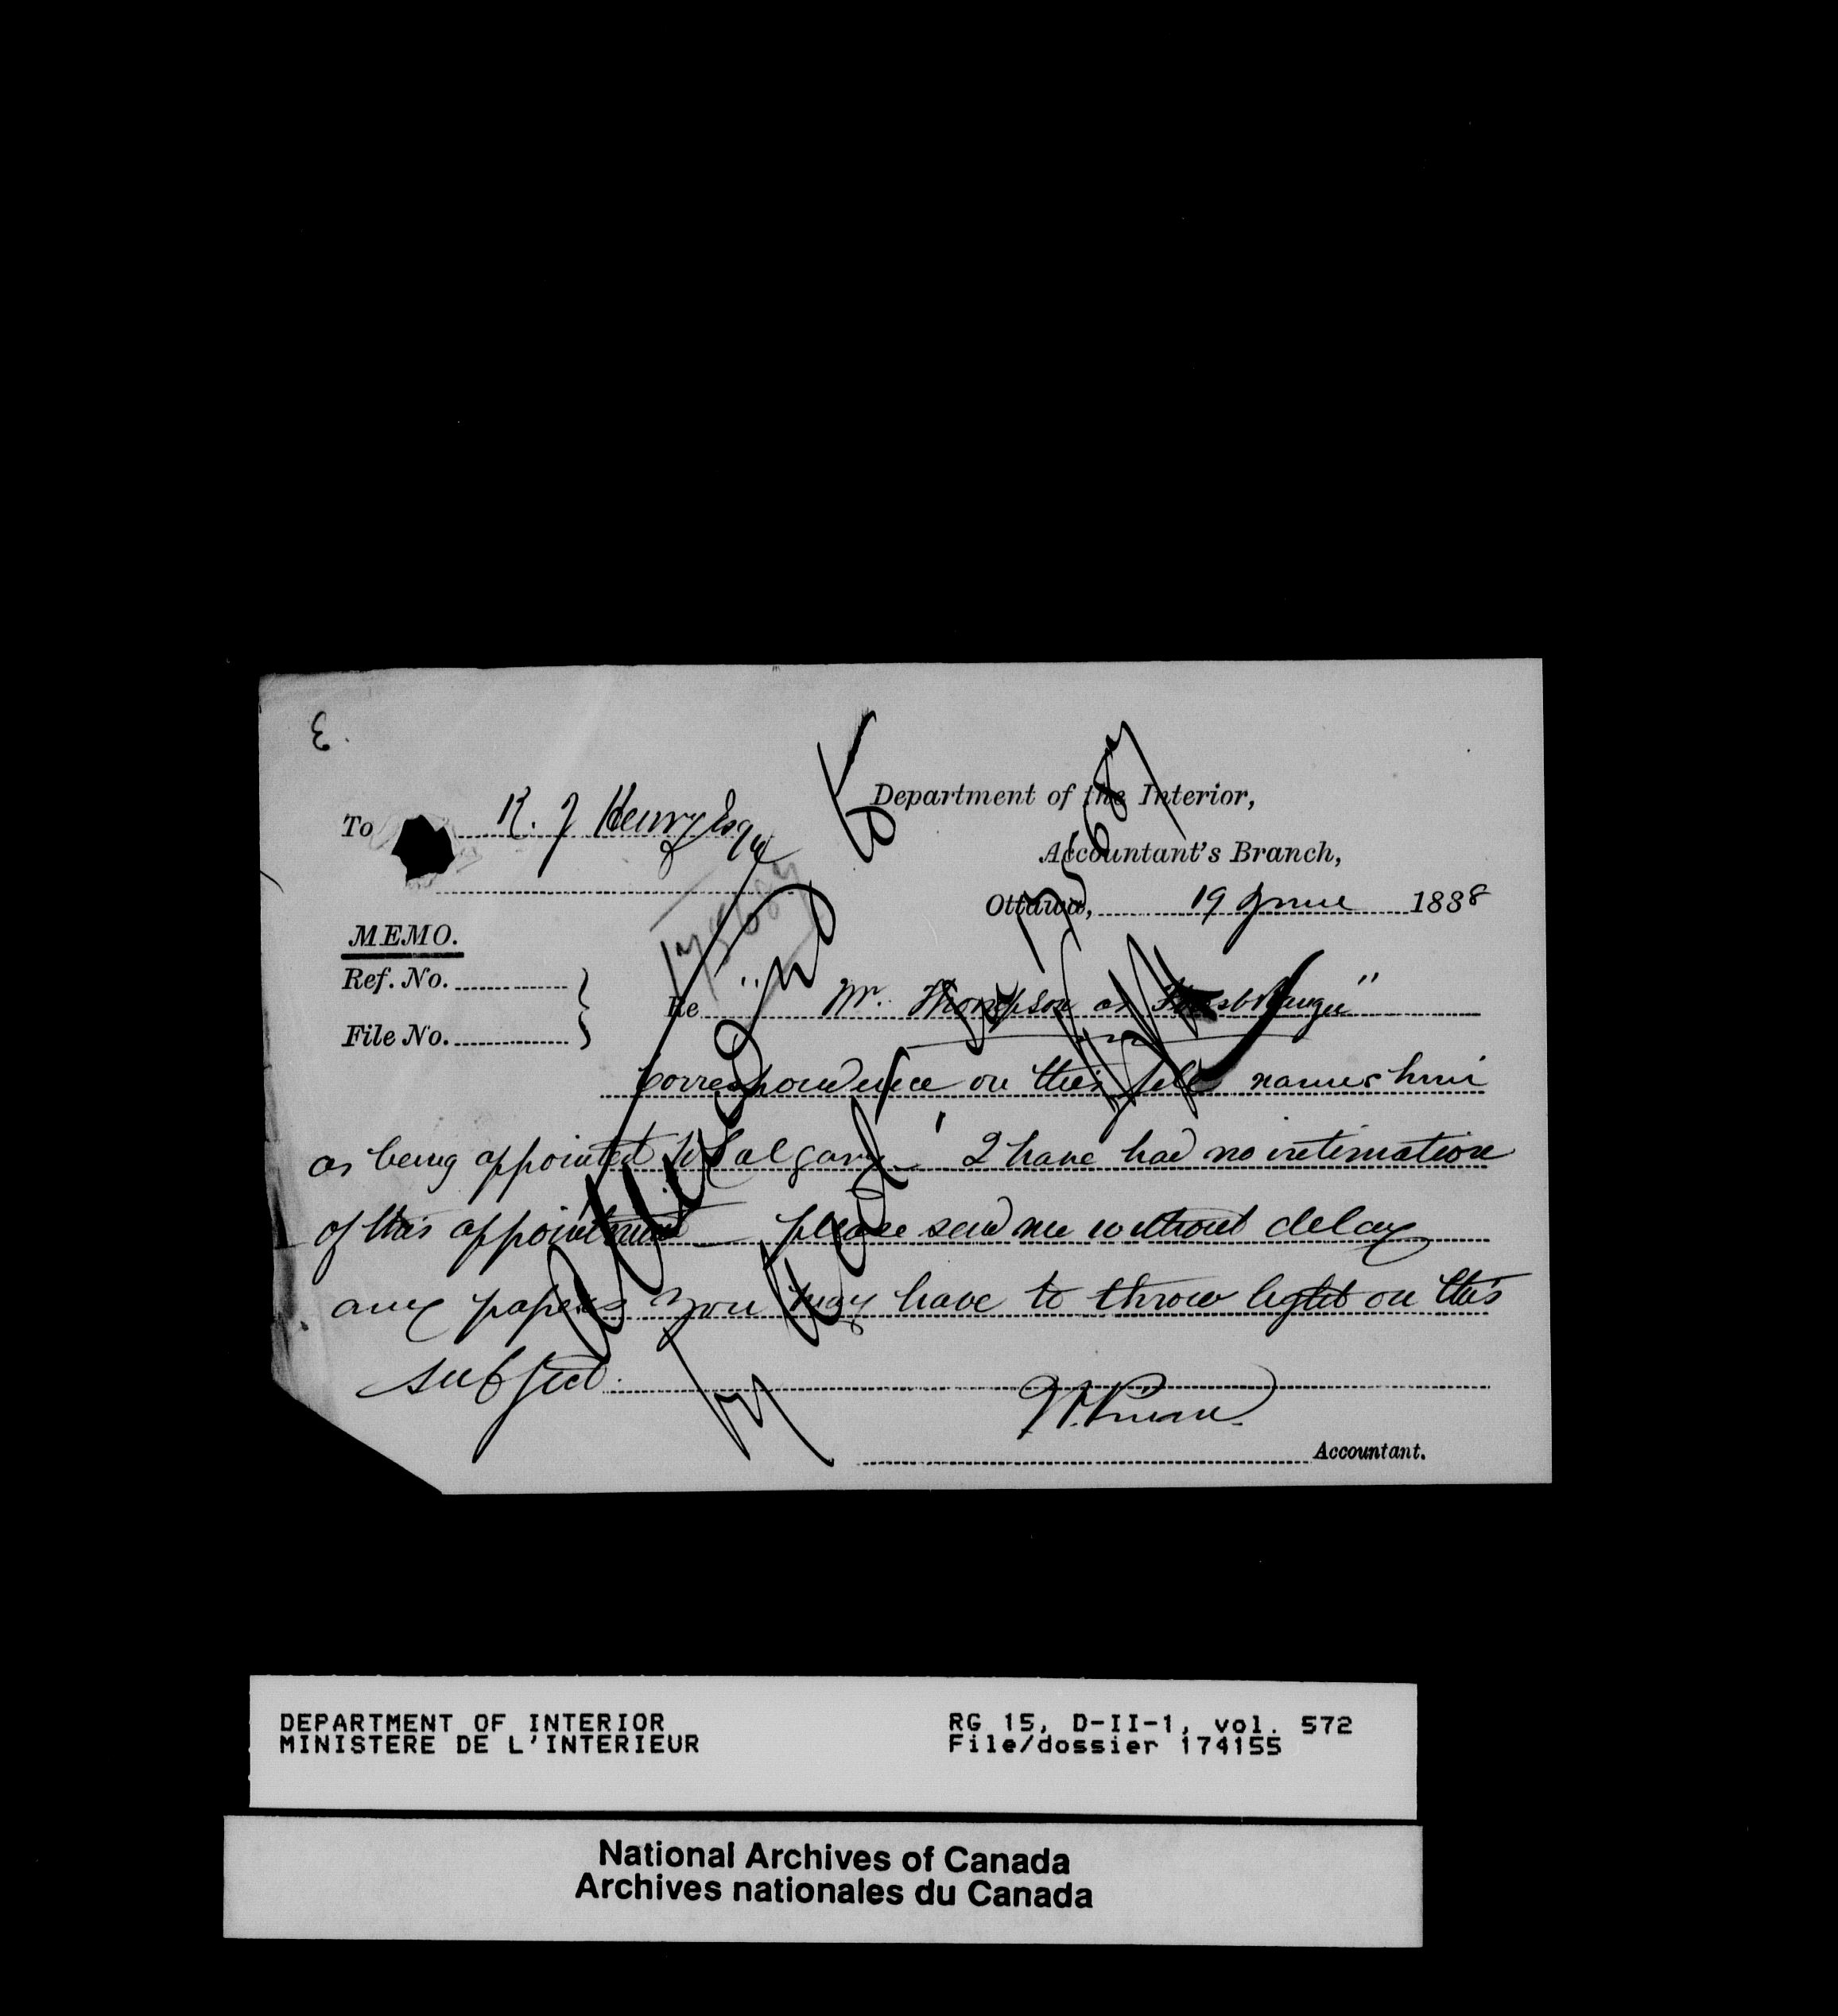 E.
Department of the Interior,
To R. J Henry Esqre
Accountant's Branch,
Ottawa, 19 June 1888
MEMO.
Ref. No.
File No.
175687
Re "Mr. Thompson as
Correspondence on this file names him
as being appointed to Calgary — I have had no intimation
of this appointment — please send me without delay
any papers you may have to throw light on this
subject.
Accountant.
attended to
by 175687
DEPARTMENT OF INTERIOR
MINISTERE DE L'INTERIEUR
RG 15, D-II-1, vol. 572
File/dossier 174155
National Archives of Canada
Archives nationales du Canada